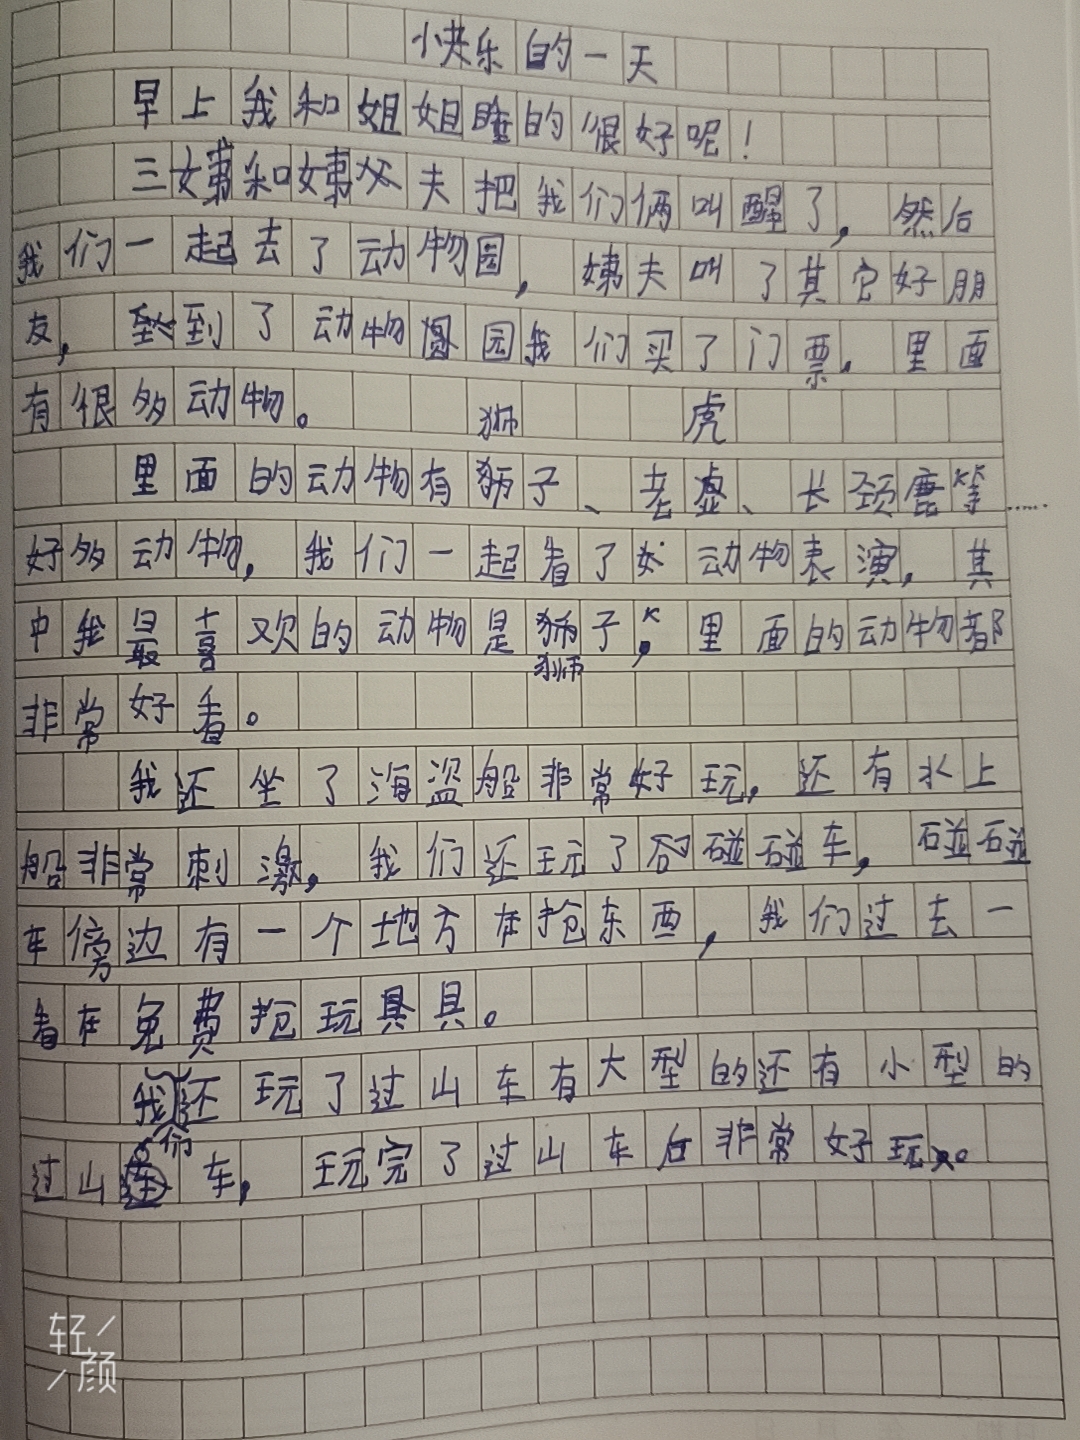 快乐的一天
早上我和姐姐睡的很好呢！
三姨和姨夫把我们俩叫醒了，然后
我们一起去了动物园，姨夫叫了其它好朋
友，到了动物园我们买了门票，里面
有很多动物。
狮 虎
里面的动物有狮子、老虎、长颈鹿等……
好多动物，我们一起看了动物表演，其
中我最喜欢的动物是狮子，里面的动物都
狮
非常好看。
我还坐了海盗船非常好玩，还有水上
船非常刺激，我们还玩了碰碰车，碰碰
车傍边有一个地方在抢东西，我们过去一
看在免费抢玩具。
我还玩了过山车有大型的还有小型的
们
过山车，玩完了过山车后非常好玩。
轻
颜